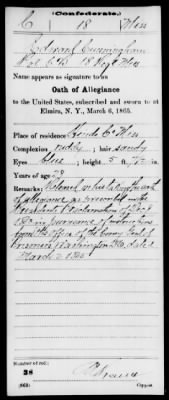 (Confederate.)
C 18 Miss
Edward Cunningham
Pvt Co. C 18 Reg't Miss
Name appears as signature to an
Oath of Allegiance
to the United States, subscribed and sworn to at
Elmira, N. Y., March 6, 1865.
Place of residence Co Miss
Complexion ruddy; hair sandy
eyes blue; height 5 ft. in.
Years of age 29
Remarks: Released
of allegiance as prescribed in the
President's Proclamation of
1863 in pursuance of instructions
from the office of the Comsy Genl of
Prisoners Washington D.C. dated
March 2 1865
Number of roll:
38
(863)
Copyist.